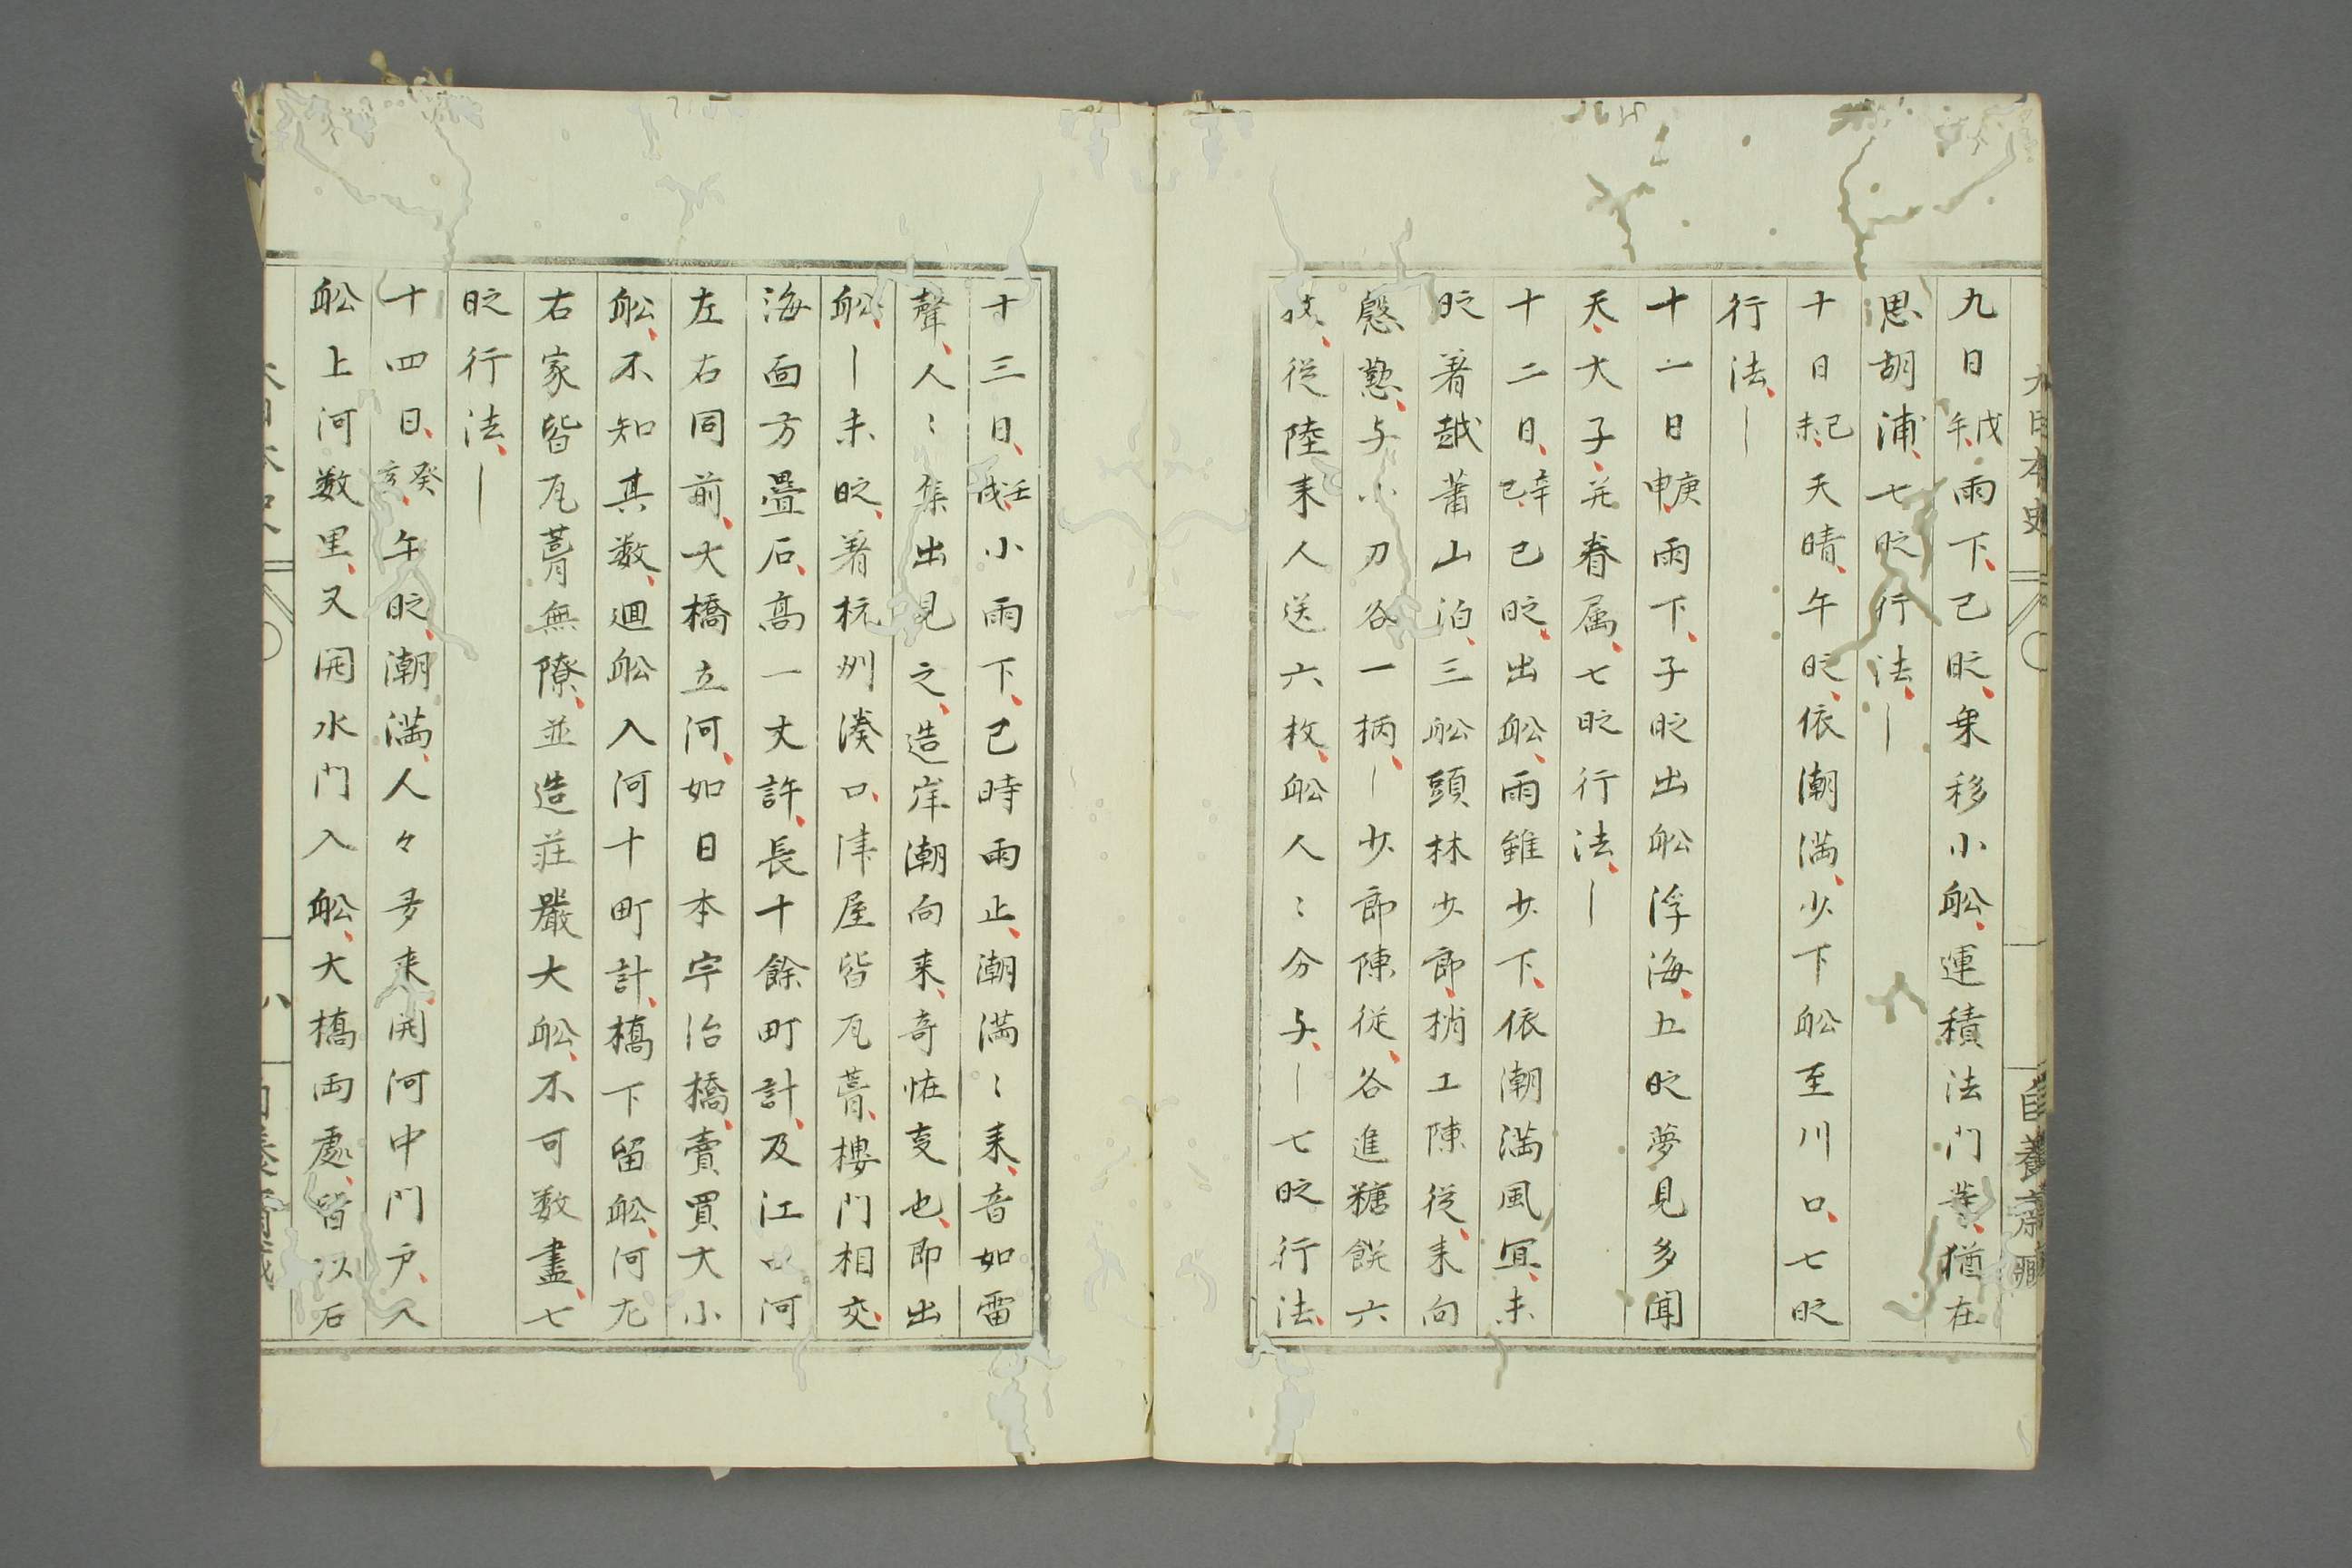 九日戊午雨下巳时乗移小舩運積法門䓁猶在
思胡浦七时行法〡
十日己未天晴午时依潮満少下舩至川口七时
行法〡
十一日庚申雨下子时出舩浮海五时夢見多聞
天大子并眷属七时行法〡
十二日辛酉巳时出舩雨雖少下依潮満風冝未
时著越蕭山泊三舩頭林少郎梢工陳從来向
慇懃与小刀各一柄〡少郎陳従各進糖餅六
枚從陸来人送六枚舩人〻分与〡七时行法
十三日壬戌小雨下巳時雨止潮満〻来音如雷
聲人〻集出見之造岸潮向来奇恠叓也即出
舩〡未时著杭州湊口津屋皆瓦葺樓門相交
海面方疊石高一丈許長十餘町計及江口河
左右同前大橋立河如日本宇治橋賣買大小
舩不知其数廻舩入河十町計橋下留舩河尢
右家皆瓦葺無隙並造莊嚴大舩不可数盡七
时行法〡
十四日癸亥午时潮満人々多来開河中門戸入
舩上河数里又開水門入舩大橋両處皆以石
大日本史
自養齋藏
八